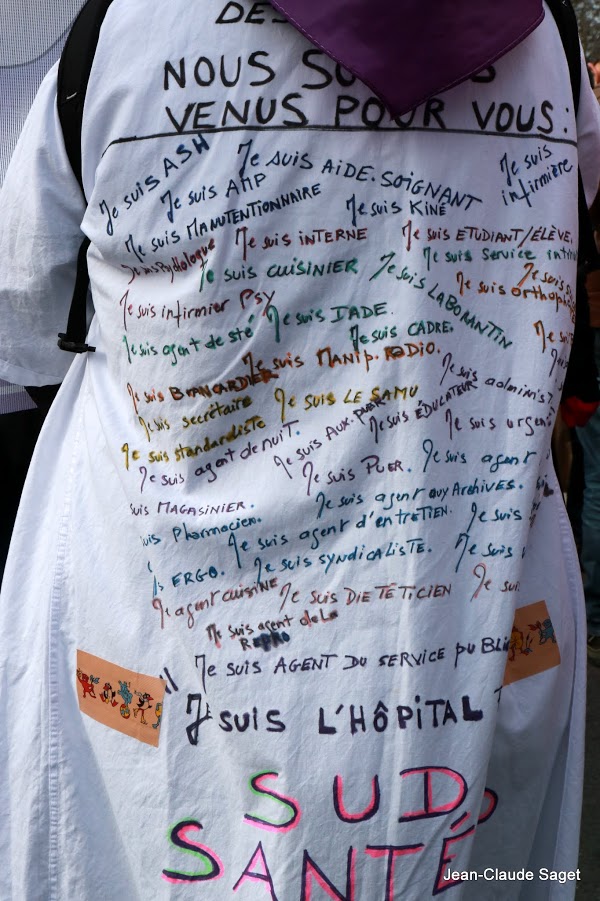 DES
NOUS SO
VENUS POUR VOUS:
Je suis ASH
Je suis AIDE-SOIGNANT
Je suis
infirmière
Je suis AMP
Je suis MANUTENTIONNAIRE
Je suis KINÉ
Je suis Psychologue
Je suis INTERNE
Je suis ETUDIANT/ÉLÈVE,
Je suis CUISINIER
Je suis LABORANTIN
Je suis Service
Je suis
Je suis infirmier Psy
Je suis
Je suis agent de sté
Je suis IADE.
Je suis CADRE.
Je suis MANIP. RADIO.
Je suis BRANCARDIER
Je suis
Je suis secrétaire
Je suis LE SAMU
Je suis ÉDUCATEUR
Je suis standardiste
Je suis AUX. PUER
Je suis
Je suis agent de NUIT.
Je suis PUER.
Je suis agent
SUIS MAGASINIER.
Je suis agent aux ARCHIVES.
uis Pharmacien.
Je suis agent d'entretien.
Je suis
s ERGO.
Je suis syndicaliste.
Je suis
Je agent CUISINE
Je suis DIETÉTICIEN
Je sui
Je suis agent de la
REPRO
Je suis AGENT DU SERVICE PUBLI
Je SUIS L'HÔPITAL
SUD
SANTÉ
Jean-Claude Saget